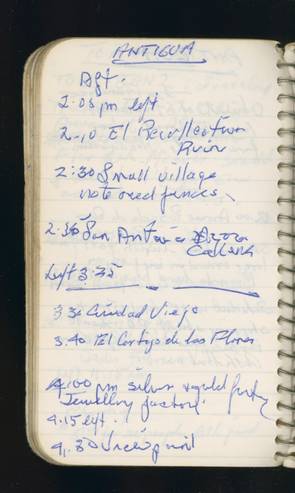 ANTIGUA
Aft.
2.05 pm left
2.10 El Recollection
Ruin
2:30 Small village
note reed fences
2.36 San Antonio
Left 3.35
3 30 Ciudad Viejo
3.40. El Cortijo de las Flores
4.00 pm silver & gold
Jewellery factory.
4.15 left.
4.30